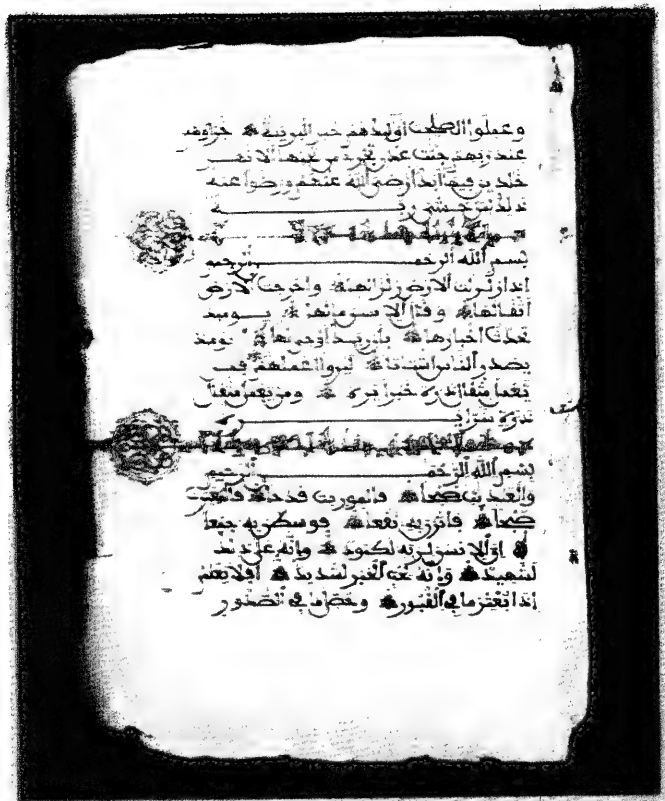 وعملوا الصلحت أوليك هم خير البرية جزاوهم
عند ربهم جنت عدن تجرى من تحتها الانهر
خلدين فيها أبدا رضى الله عنهم ورضوا عنه
ذلك لمن خشى ربه
بسم الله الرحمن الرحيم
إذا زلزلت الارض زلزالها وأخرجت الارض
أثقالها وقال الانسن ما لها يوميذ
تحدث أخبارها بأن ربك أوحى لها يوميذ
يصدر الناس أشتاتا ليروا أعملهم فمن
يعمل مثقال ذرة خيرا يره ومن يعمل مثقال
ذرة شرا يره
بسم الله الرحمن الرحيم
والعديت ضبحا فالموريت قدحا فالمغيرت
صبحا فأثرن به نقعا فوسطن به جمعا
إن الانسن لربه لكنود وإنه على ذلك
لشهيد وإنه لحب الخير لشديد أفلا يعلم
إذا بعثر ما في القبور وحصل ما في الصدور